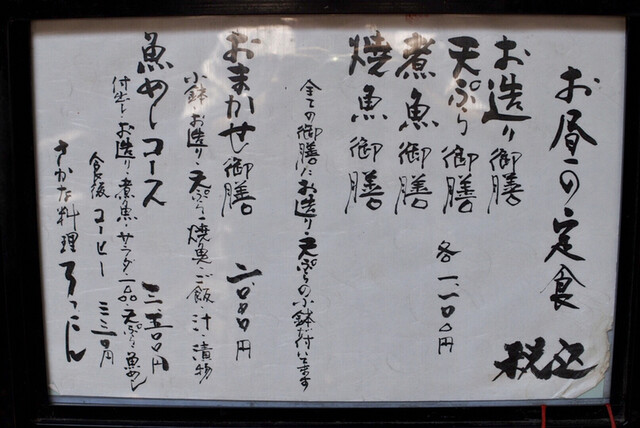 お昼の定食
税込
お造り御膳
天ぷら御膳
煮魚御膳
焼魚御膳
各一、一〇〇円
全ての御膳にお造り・天ぷらの小鉢が付いてます
おまかせ御膳 二、〇〇〇円
小鉢・お造り・天ぷら・焼魚・ご飯・汁・漬物
魚めしコース 三、五〇〇円
付出し・お造り・煮魚・サラダ・一品・天ぷら・魚めし
食後コーヒー 三三〇円
さかな料理